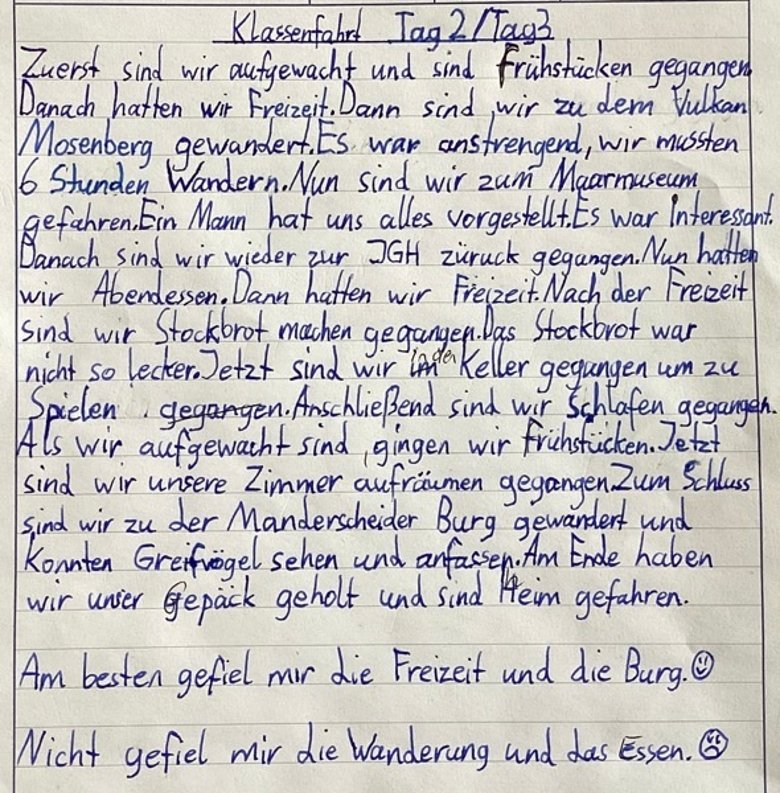 Klassenfahrt Tag 2/Tag3
Zuerst sind wir aufgewacht und sind frühstücken gegangen
Danach hatten wir Freizeit. Dann sind wir zu dem Vulkan
Mosenberg gewandert. Es war anstrengend, wir mussten
6 Stunden Wandern. Nun sind wir zum Maarmuseum
gefahren. Ein Mann hat uns alles vorgestellt. Es war interessant.
Danach sind wir wieder zur JGH züruck gegangen. Nun hatten
wir Abendessen. Dann hatten wir Freizeit. Nach der Freizeit
sind wir Stockbrot machen gegangen. Das Stockbrot war
nicht so lecker. Jetzt sind wir in den Keller gegangen um zu
Spielen . gegangen. Anschließend sind wir Schlafen gegangen.
Als wir aufgewacht sind, gingen wir frühstücken. Jetzt
sind wir unsere Zimmer aufräumen gegangen. Zum Schluss
sind wir zu der Manderscheider Burg gewandert und
konnten Greifvögel sehen und anfassen. Am Ende haben
wir unser Gepäck geholt und sind heim gefahren.
Am besten gefiel mir die Freizeit und die Burg. ☺
Nicht gefiel mir die Wanderung und das Essen. ☹